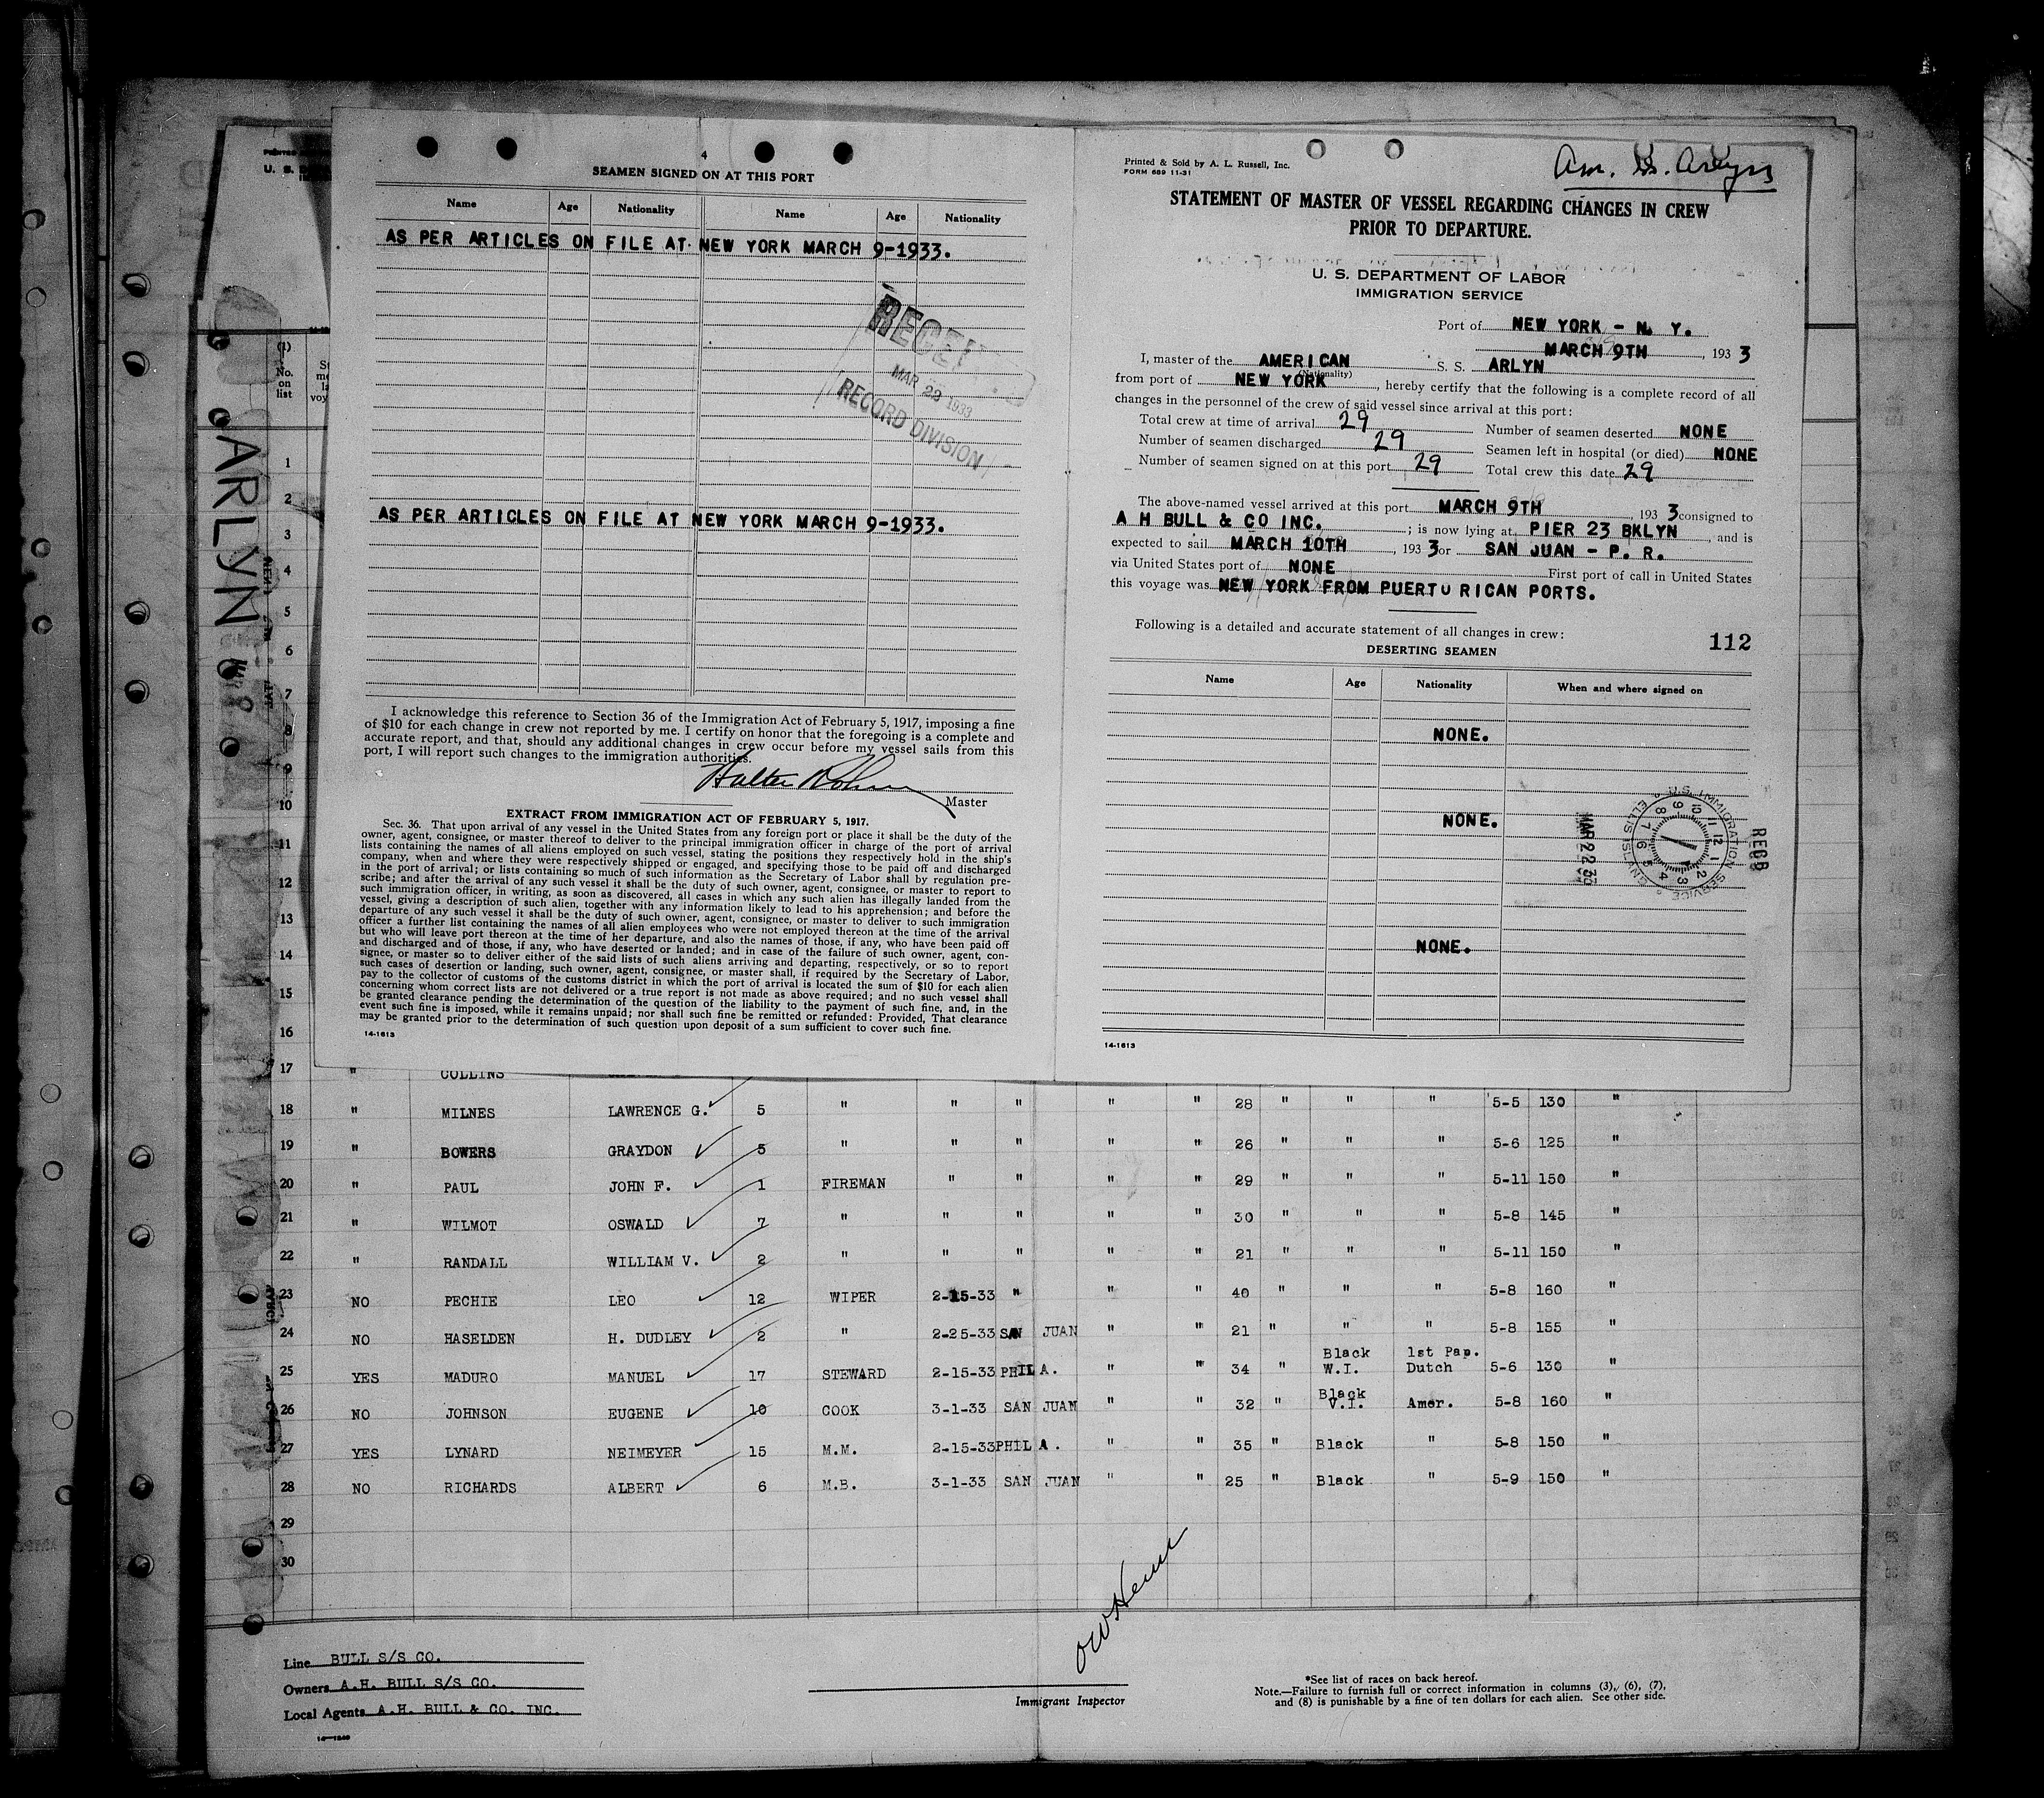 4
SEAMEN SIGNED ON AT THIS PORT
Name Age Nationality Name Age Nationality
AS PER ARTICLES ON FILE AT NEW YORK MARCH 9-1933.
MAR 22 1933
RECORD DIVISION
AS PER ARTICLES ON FILE AT NEW YORK MARCH 9-1933.
I acknowledge this reference to Section 36 of the Immigration Act of February 5, 1917, imposing a fine
of $10 for each change in crew not reported by me. I certify on honor that the foregoing is a complete and
accurate report, and that, should any additional changes in crew occur before my vessel sails from this
port, I will report such changes to the immigration authorities.
Master
EXTRACT FROM IMMIGRATION ACT OF FEBRUARY 5, 1917.
Sec. 36. That upon arrival of any vessel in the United States from any foreign port or place it shall be the duty of the
owner, agent, consignee, or master thereof to deliver to the principal immigration officer in charge of the port of arrival
lists containing the names of all aliens employed on such vessel, stating the positions they respectively hold in the ship's
company, when and where they were respectively shipped or engaged, and specifying those to be paid off and discharged
in the port of arrival; or lists containing so much of such information as the Secretary of Labor shall by regulation pre-
scribe; and after the arrival of any such vessel it shall be the duty of such owner, agent, consignee, or master to report to
such immigration officer, in writing, as soon as discovered, all cases in which any such alien has illegally landed from the
vessel, giving a description of such alien, together with any information likely to lead to his apprehension; and before the
departure of any such vessel it shall be the duty of such owner, agent, consignee, or master to deliver to such immigration
officer a further list containing the names of all alien employees who were not employed thereon at the time of the arrival
but who will leave port thereon at the time of her departure, and also the names of those, if any, who have been paid off
and discharged and of those, if any, who have deserted or landed; and in case of the failure of such owner, agent, con-
signee, or master so to deliver either of the said lists of such aliens arriving and departing, respectively, or so to report
such cases of desertion or landing, such owner, agent, consignee, or master shall, if required by the Secretary of Labor,
pay to the collector of customs of the customs district in which the port of arrival is located the sum of $10 for each alien
concerning whom correct lists are not delivered or a true report is not made as above required; and no such vessel shall
be granted clearance pending the determination of the question of the liability to the payment of such fine, and, in the
event such fine is imposed, while it remains unpaid; nor shall such fine be remitted or refunded: Provided, That clearance
may be granted prior to the determination of such question upon deposit of a sum sufficient to cover such fine.
14-1613
Printed & Sold by A. L. Russell, Inc.
FORM 689 11-31
Am. SS. Arlyn
STATEMENT OF MASTER OF VESSEL REGARDING CHANGES IN CREW
PRIOR TO DEPARTURE.
U. S. DEPARTMENT OF LABOR
IMMIGRATION SERVICE
Port of NEW YORK - N. Y.
MARCH 9TH, 193 3
I, master of the AMERICAN S. S. ARLYN
(Nationality)
from port of NEW YORK, hereby certify that the following is a complete record of all
changes in the personnel of the crew of said vessel since arrival at this port:
Total crew at time of arrival 29 Number of seamen deserted NONE
Number of seamen discharged 29 Seamen left in hospital (or died) NONE
Number of seamen signed on at this port 29 Total crew this date 29
The above-named vessel arrived at this port MARCH 9TH, 193 3 consigned to
A H BULL & CO INC.; is now lying at PIER 23 BKLYN, and is
expected to sail MARCH 10TH, 193 3 or SAN JUAN - P. R.
via United States port of NONE First port of call in United States
this voyage was NEW YORK FROM PUERTU RICAN PORTS.
Following is a detailed and accurate statement of all changes in crew: 112
DESERTING SEAMEN
Name Age Nationality When and where signed on
NONE.
NONE.
NONE.
U.S. IMMIGRATION SERVICE ELLIS ISLAND
14-1613
ARLYN
(1)
No.
on
list
1
2
3
4
5
6
7
8
9
10
11
12
13
14
15
16
17 " COLLINS
18 " MILNES LAWRENCE G. 5 " " " " " 28 " " " 5-5 130 "
19 " BOWERS GRAYDON 5 " " " " " 26 " " " 5-6 125 "
20 " PAUL JOHN F. 1 FIREMAN " " " " 29 " " " 5-11 150 "
21 " WILMOT OSWALD 7 " " " " " 30 " " " 5-8 145 "
22 " RANDALL WILLIAM V. 2 " " " " " 21 " " " 5-11 150 "
23 NO PECHIE LEO 12 WIPER 2-15-33 " " " 40 " " " 5-8 160 "
24 NO HASELDEN H. DUDLEY 2 " 2-25-33 SAN JUAN " " 21 " " " 5-8 155 "
25 YES MADURO MANUEL 17 STEWARD 2-15-33 PHILA. " " 34 " Black W.I. 1st Pap. Dutch 5-6 130 "
26 NO JOHNSON EUGENE 10 COOK 3-1-33 SAN JUAN " " 32 " Black V.I. Amer. 5-8 160 "
27 YES LYNARD NEIMEYER 15 M.M. 2-15-33 PHILA. " " 35 " Black " 5-8 150 "
28 NO RICHARDS ALBERT 6 M.B. 3-1-33 SAN JUAN " " 25 " Black " 5-9 150 "
29
30
Line BULL S/S CO.
Owners A.H. BULL S/S CO.
Local Agents A.H. BULL & CO. INC.
Immigrant Inspector
*See list of races on back hereof.
Note.—Failure to furnish full or correct information in columns (3), (6), (7),
and (8) is punishable by a fine of ten dollars for each alien. See other side.